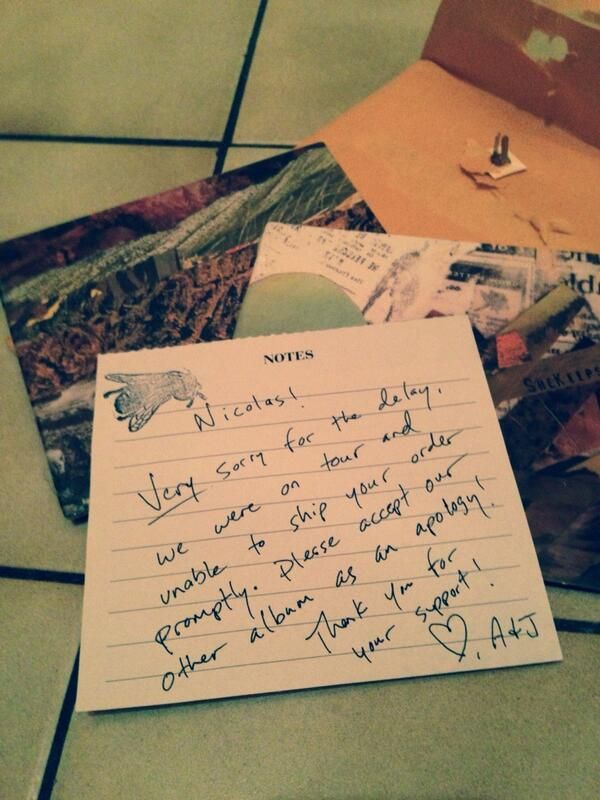 NOTES
Nicolas!
Very sorry for the delay,
we were on tour and
unable to ship your order
promptly. Please accept our
other album as an apology!
Thank you for
your support!
♡, A&J
SHEKEEPS